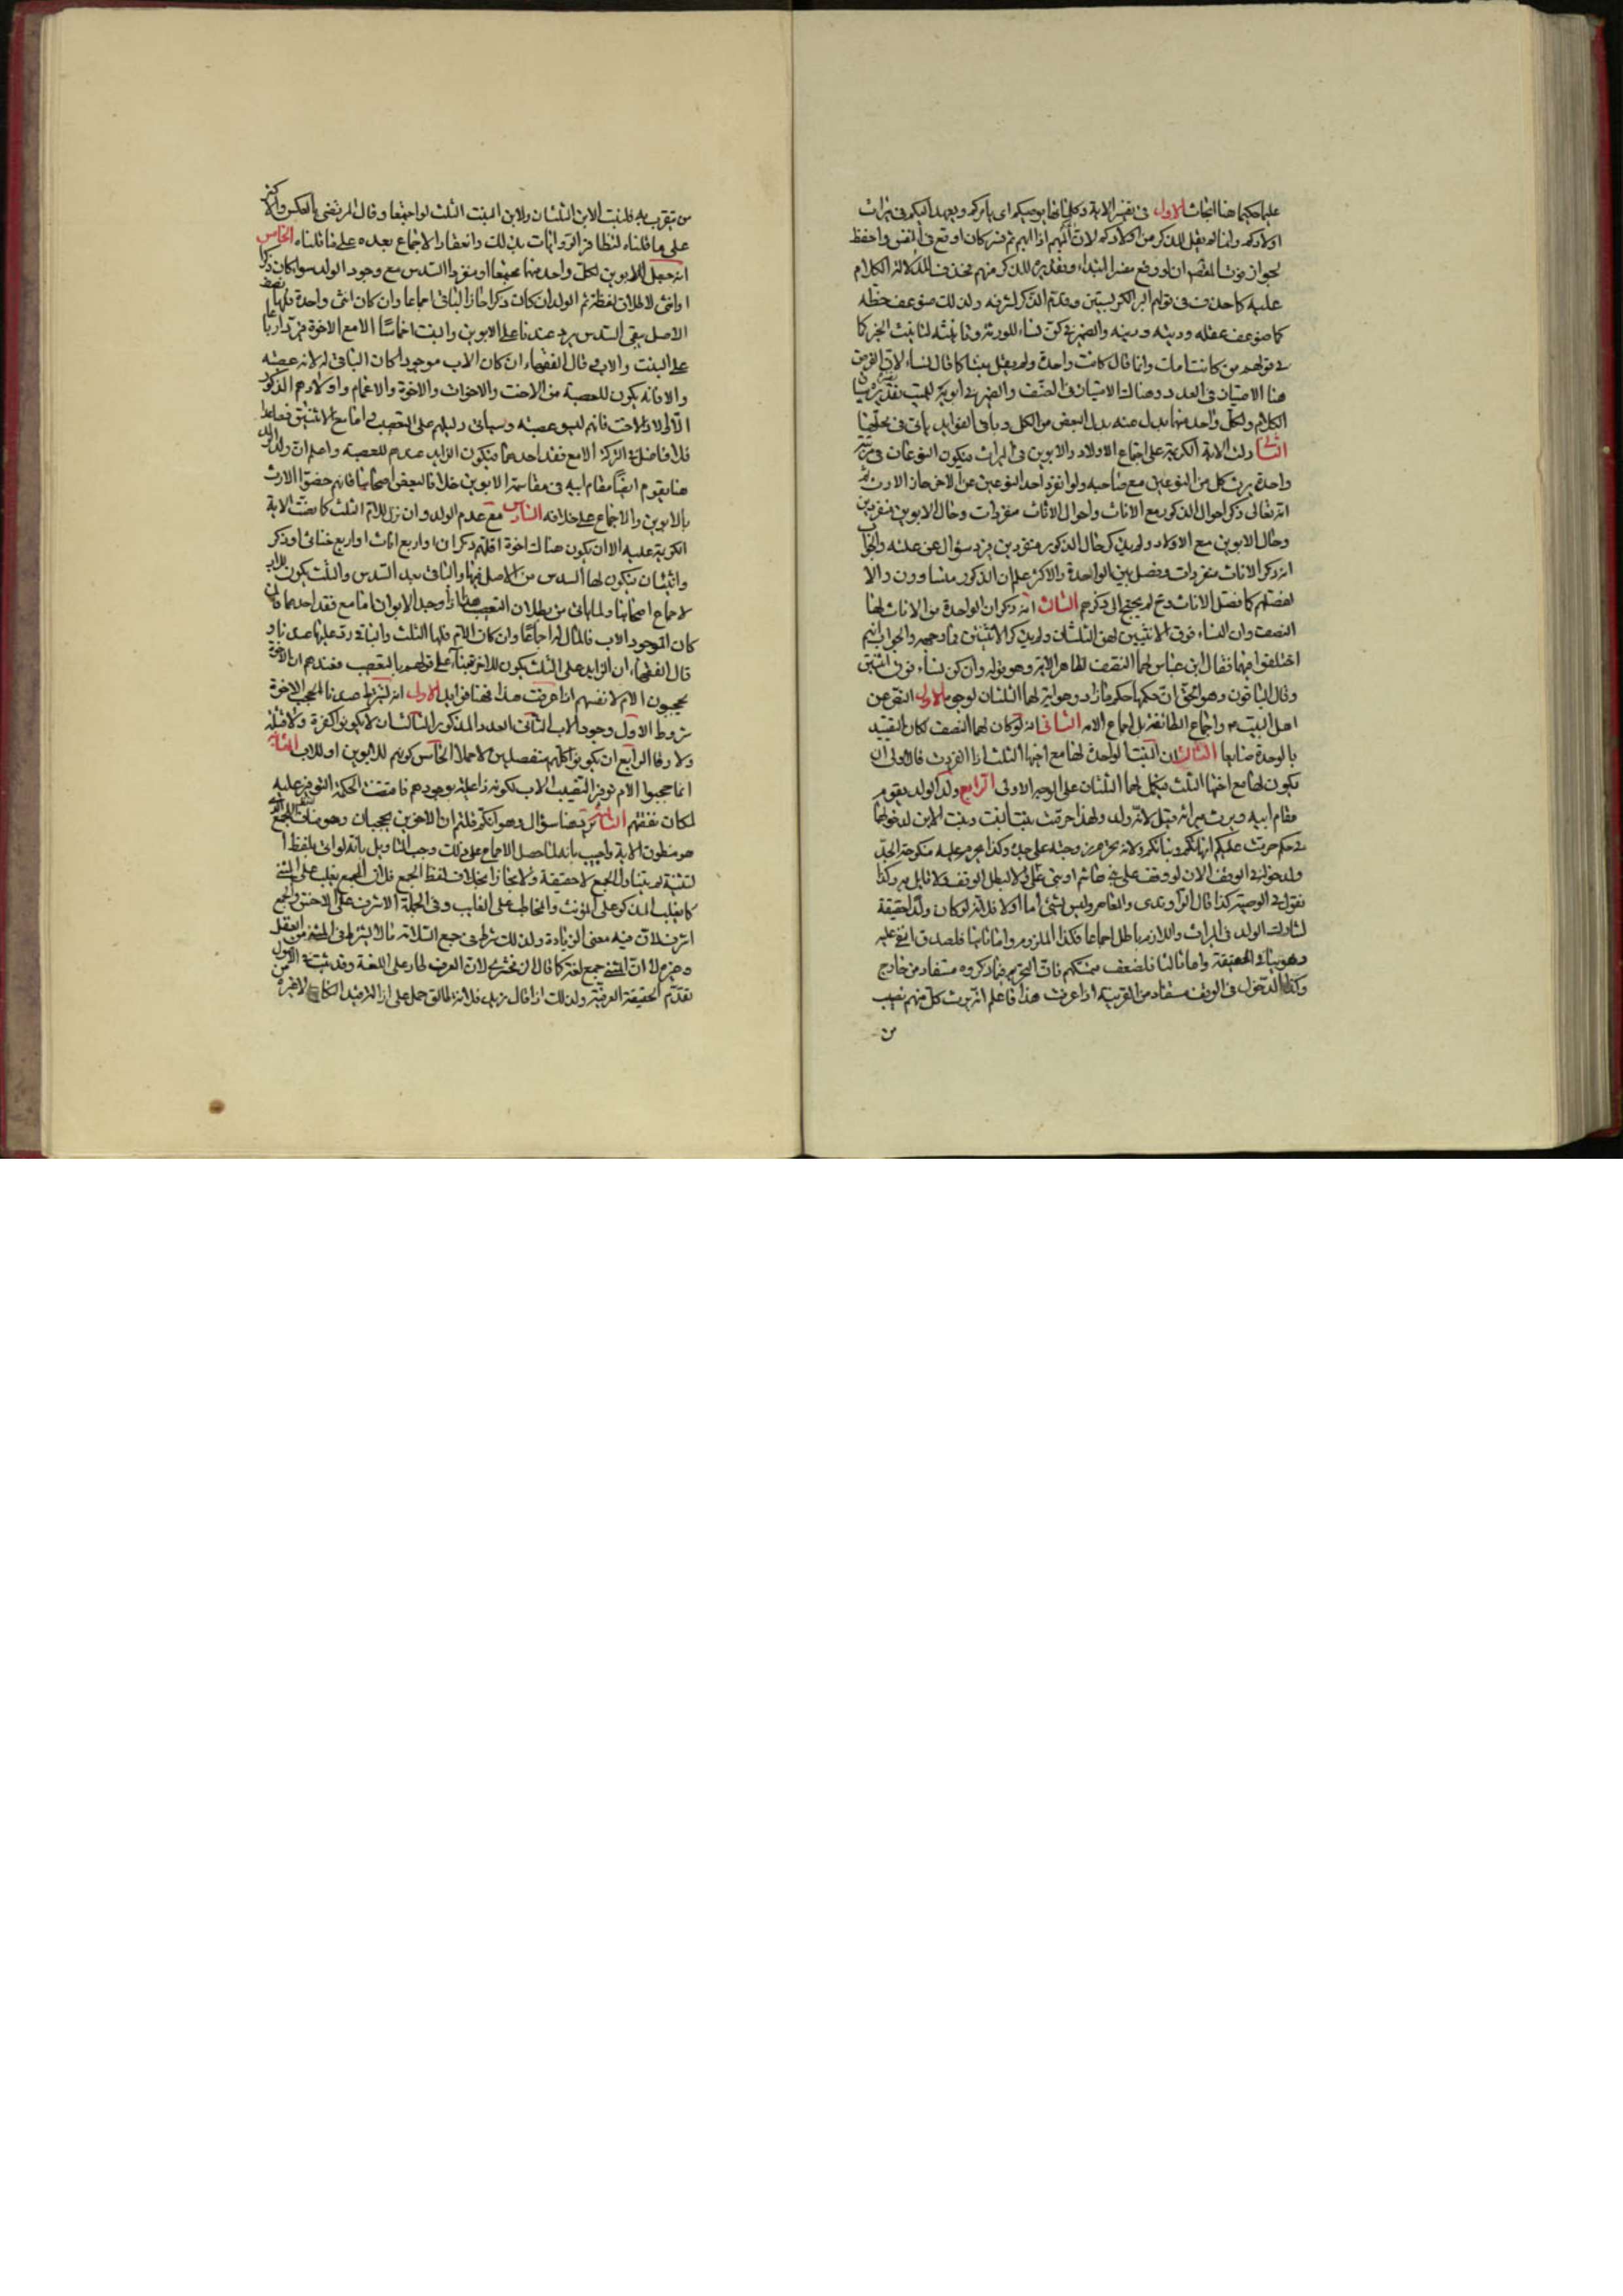 عليما حكيما هنا ابحاث الاول فى تفسير الاية وكلماتها يوصيكم اى يامركم ويعهد اليكم فى ميراث
اولادكم وانما لم يقل للذكر من اولادكم
لجواز فوت المقصد ان لو وقع بغير ابتداء وتقديره للذكر منهم فحذف لدلالة الكلام
عليه كما حذف فى قولهم البر الكر بستين وقدم الذكر لشرفه ولذلك ضوعف حظه
كما ضوعف عقله ودينه ودينه والضمير فى كن نساء للورثة وتانيثه لتانيث الخبر كما
فى قولهم من كانت امك وانما قال كانت واحدة ولم يقل بنتا كما قال نساء لان الغرض
هنا الامتياز فى العدد وهناك الامتياز فى الصنف والضمير فى ابويه للميت
الكلام ولكل واحد منهما بدل منه بدل البعض من الكل وباقى الفوايد ياتى فى محلها
الثانى دلت الاية الكريمة على اجتماع الاولاد والابوين فى الميراث فيكون النوعان فى مرتبة
واحدة يرث كل من النوعين مع صاحبه ولو انفرد احد النوعين عن الاخر حاز الارث ثم
انه تعالى ذكر احوال الذكور مع الاناث واحوال الاناث مفردات وحال الابوين منفردين
وحال الابوين مع الاولاد ولم يذكر حال الذكور منفردين فيرد سؤال عن علته والجواب
انه ذكر الاناث منفردات وفصل بين الواحدة والاكثر علم ان الذكور متساوون والا
لفصلهم كما فصل الاناث وح لم يحتج الى ذكرهم الثالث انه ذكر ان الواحدة من الاناث لها
النصف وان النساء فوق الاثنتين لهن الثلثان ولم يذكر الاثنتين فما وجهه والجواب انهم
اختلفوا فيهما فقال ابن عباس لهما النصف لظاهر الاية وهو قوله وان كن نساء فوق اثنتين
وقال الباقون وهو الحق ان حكمهما حكم ما زاد وهو انه لهما الثلثان لوجوه الاول النص عن
اهل البيت ع واجماع الطائفة بل اجماع الامه الثانى انه لو كان لهما النصف لكان التقييد
بالوحدة ضايعا الثالث ان البنت الواحدة لها مع اخيها الثلث اذا انفردت فالاولى ان
يكون لها مع اختها الثلث فيكمل لهما الثلثان على الوجه الاولى الرابع ولد الولد يقوم
مقام ابيه ويرث ميراثه قيل لانه ولد ولهذا حرمت بنت البنت وبنت الابن لدخولهما
فى حكم حرمت عليكم امهاتكم وبناتكم ولانه يحرم زوجته على جده وكذا يحرم عليه منكوحة الجد
ولدخوله فى الوقف الان لو وقف على بنى هاشم او بنى على والا لبطل الوقف ولا قايل به وكذا
نقول فى الوصية كذا قال الراوندى والمعاصر وليس بشئ اما اولا فلانه لو كان ولدا حقيقة
لشارك الولد فى الميراث واللازم باطل اجماعا فكذا الملزوم واما ثانيا فلصدق النفى عليه
وهو ينافى الحقيقة واما ثالثا فلضعف متمسكهم فان التحريم فيما ذكروه مستفاد من خارج
وكذا الدخول فى الوقف مستفاد من القرينة اذا عرفت هذا فاعلم انه يرث كل منهم نصيب
من
من يتقرب به فلبنت الابن الثلثان ولابن البنت الثلث لو اجتمعا وقال المرتضى بالعكس والاكثر
على ما قلناه لتظافر الروايات بذلك وانعقاد الاجماع بعده على ما قلناه الخامس
انه جعل للابوين لكل واحد منهما مجتمعا او منفردا السدس مع وجود الولد سواء كان ذكرا
او انثى لاطلاق لفظه ثم الولد ان كان ذكرا حاز الباقى اجماعا وان كان انثى واحدة فلها نصف
الاصل يبقى السدس يرد عندنا على الابوين والبنت اخماسا الا مع الاخوة فيرد ارباعا
على البنت والاب وقال الفقهاء ان كان الاب موجودا كان الباقى له لانه عصبة
والا فانه يكون للعصبة من الاخت والاخوات والاخوة والاعمام واولادهم الذكور
الا اولاد الاخت فانهم ليسو عصبة وسياتى دليلهم على التعصيب واما مع الاثنتين فصاعدا
فلا فاضل فى التركة الا مع فقد احدهما فيكون الزايد عندهم للعصبة واعلم ان ولد الولد
هنا يقوم ايضا مقام ابيه فى مقاسمة الابوين خلافا لبعض اصحابنا فانهم خصوا الارث
بالابوين والاجماع على خلافه السادس مع عدم الولد وان نزل للام الثلث كما نصت الاية
الكريمة عليه الا ان يكون هناك اخوة اقلهم ذكران او اربع اناث او اربع خناثى او ذكر
وانثيان فيكون لها السدس من الاصل فيها والباقى بعد السدس والثلث يكون للاب
لاجماع اصحابنا ولما ياتى من بطلان التعصيب هذا اذا وجد الابوان اما مع فقد احدهما فان
كان الموجود الاب فالمال له اجماعا وان كان الام فلها الثلث والباقى رد عليها عندنا و
قال الفقهاء ان الزايد على الثلث يكون للاخر بناء على قولهم بالتعصيب فعندهم ان الاخوة
يحجبون الام لانفسهم اذا عرفت هذا فهنا فوايد الاول انه يشترط عندنا لحجب الاخوة
شروط الاول وجود الاب الثانى العدد المذكور الثالث ان لا يكونوا كفرة ولا قتلة
ولا رقا الرابع ان يكونوا كلهم منفصلين لا حملا الخامس كونهم للابوين او للاب الثانية
انما حجبوا الام ليوفر النصيب للاب لكونه ذا علقة بوجودهم فاقتضت الحكمة التوفير عليه
لمكان نفقتهم الثالثة يرد هنا سؤال وهو انكم قلتم ان الاخوين يحجبان وهو مناف للجمع الذى
هو منطوق الاية واجيب بانه لما حصل الاجماع على ذلك وجب التاويل بانه لو اتى بلفظ ا
لتثنية لم يتناول الجمع لا حقيقة ولا مجازا بخلاف لفظ الجمع فلان الجمع يغلب على المثنى
كما يغلب المذكر على المؤنث والمخاطب على الغايب وفى الجملة الاشرف على الاخس والجمع
اشرف لان فيه معنى الزيادة ولذلك شرط فى جمع السلامة ما لا يشترط فى المثنى من العقل
وغيره او ان المثنى جمع لغة كما قال الزمخشرى لان العرف طار على اللغة وقد ثبت فى الاصول
تقدم الحقيقة العرفية ولذلك اذا قال زيد فلانة طالق حمل على ازالة قيد النكاح لا غيره